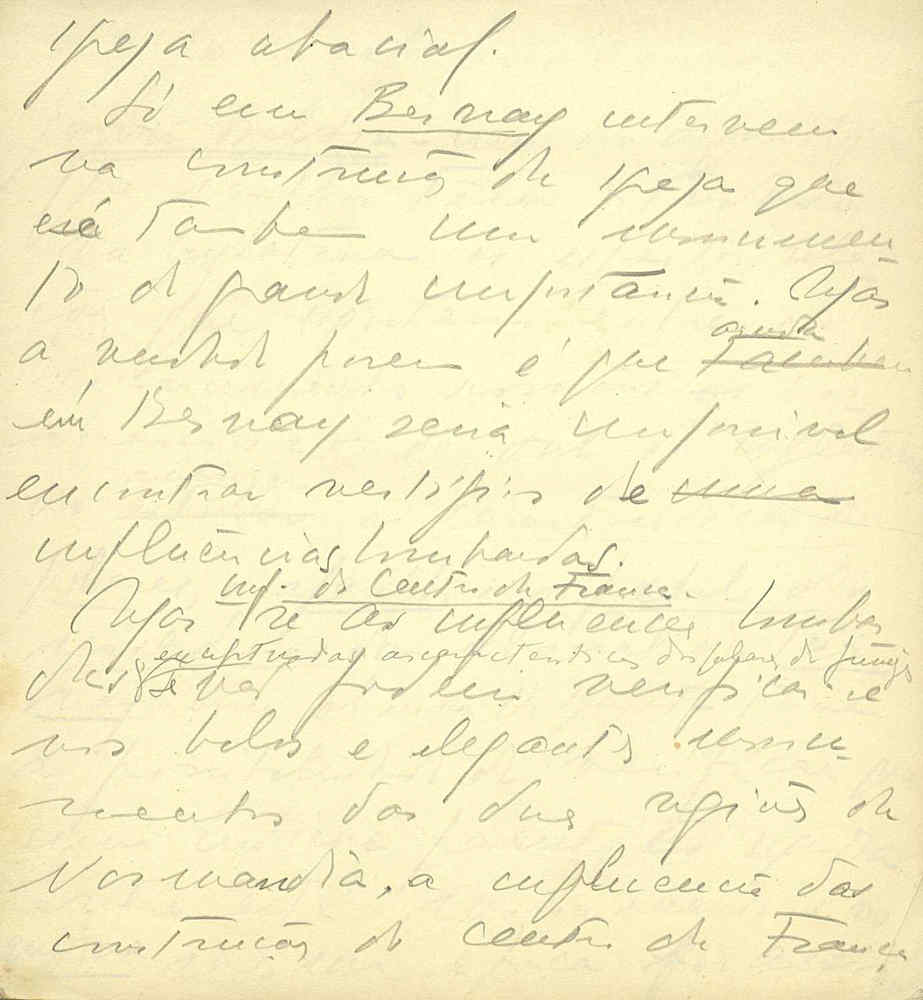 igreja abacial.
Só em Bernay interveem
na construção da igreja que
é tambem um monumen
to de grande importancia. Mas
a verdade porem é que ainda
em Bernay seria impossivel
encontrar vestigios de uma
influências lombardas.
inf. do Centro da França.
Mas se as influencias lombar
exceptuadas as caracteristicas das
das não podem verificar-se
nos belos e elegantes monu-
mentos das duas regiões da
Normandia, a influencia das
construções do centro da França